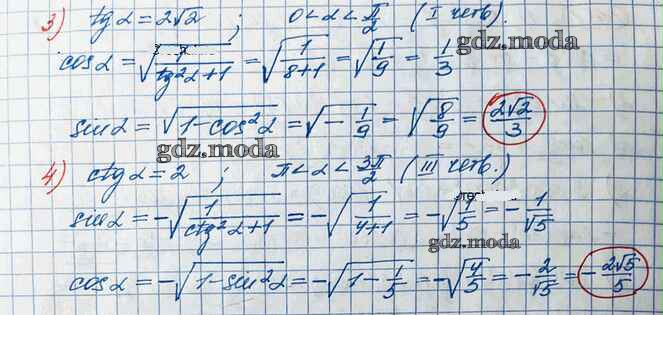 3) tg α = 2√2 ; 0 < α < π/2 (I четв).
gdz.moda
cos α = √(1/(tg²α+1)) = √(1/(8+1)) = √(1/9) = 1/3
sin α = √(1-cos²α) = √(-1/9) = √(8/9) = 2√2/3
gdz.moda
4) ctg α = 2 ; π < α < 3π/2 (III четв.)
sin α = -√(1/(ctg²α+1)) = -√(1/(4+1)) = -√(1/5) = -1/√5
gdz.moda
cos α = -√(1-sin²α) = -√(1-1/5) = -√(4/5) = -2/√5 = -2√5/5